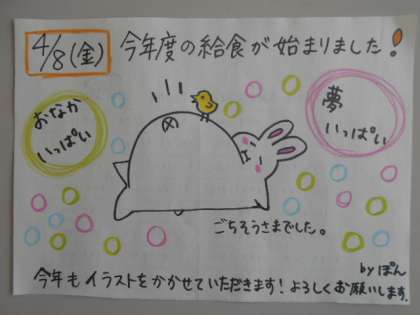 4/8(金)
今年度の給食が始まりました!
おなか
いっぱい
夢
いっぱい
ごちそうさまでした。
by ぽん
今年もイラストをかかせていただきます!よろしくお願いします。